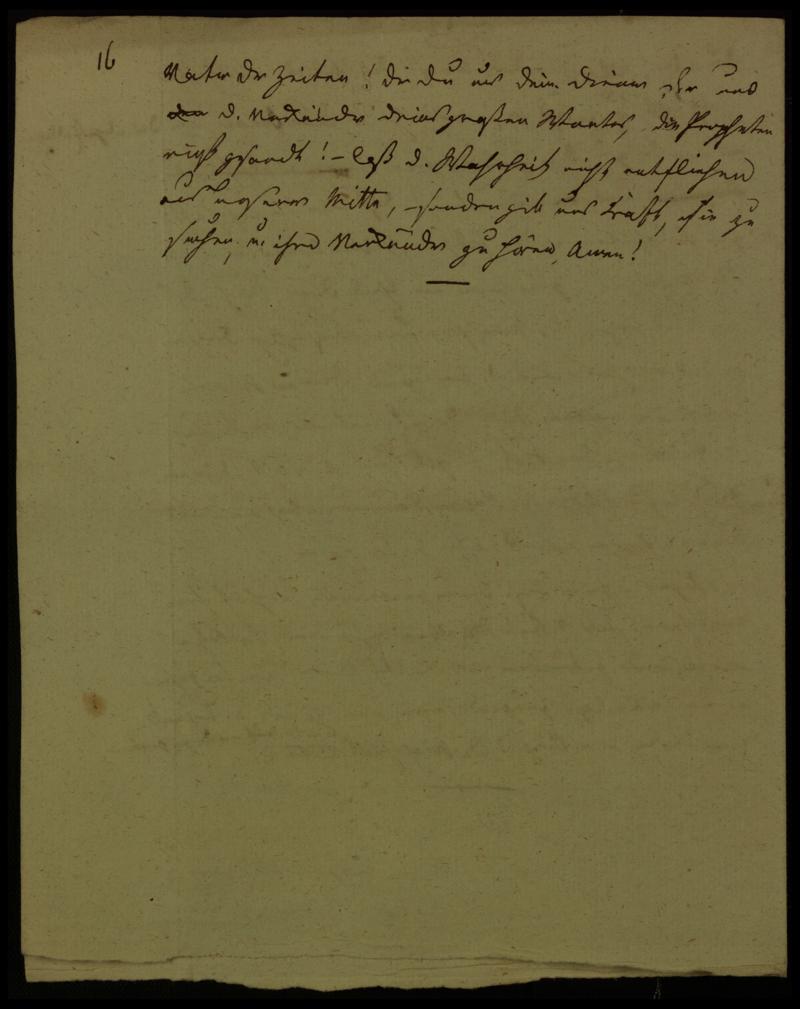 16
Vater der Zeiten! der du uns deine Diener, der uns
d. Verkünder deines großen Wortes, die Propheten
nicht gesandt! – laß d. Wahrheit nicht entfliehen
aus unserer Mitte, – sondern gib uns Kraft, sie zu
suchen, u. ihren Verkünder zu hören, Amen!